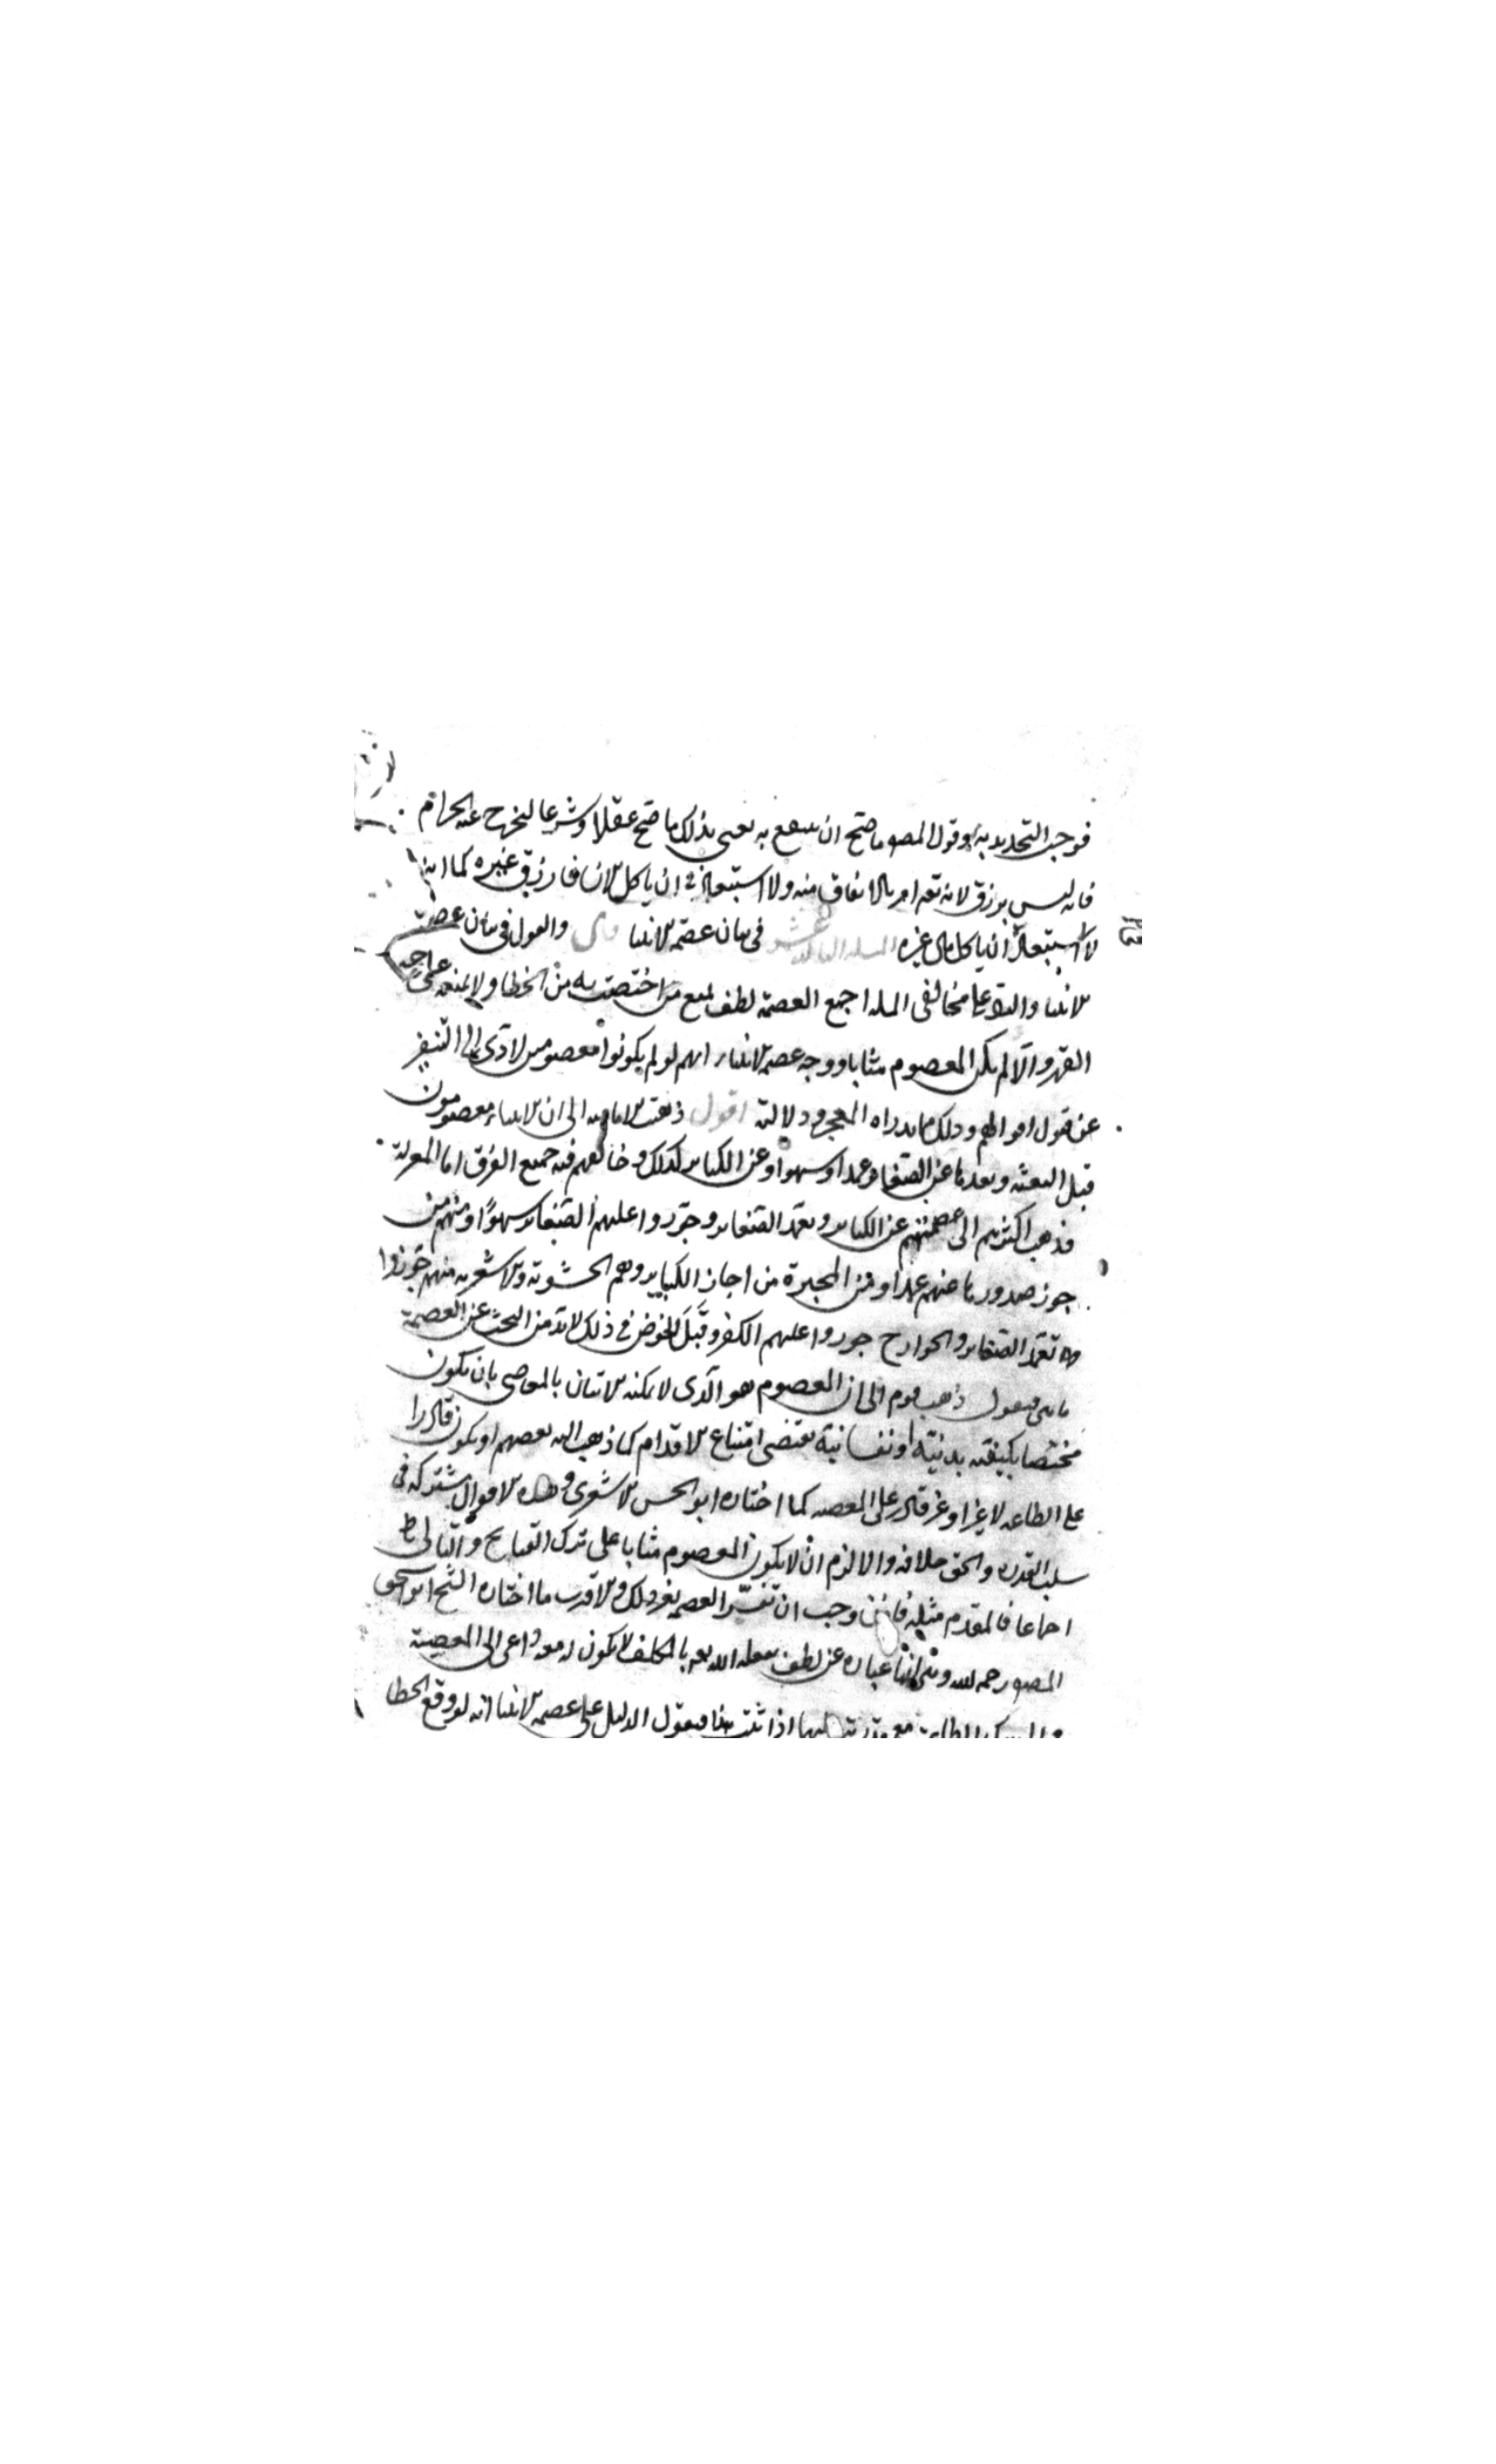 فوجب التحديد به وقول المصو ما صح ان ينتفع به يعنى بذلك ما صح عقلا وشرعا ليخرج عنه الحرام
فانه ليس برزق لانه تعه امر بالانفاق منه ولا استبعاد فى ان ياكل الانسان رزق غيره كما انه
لا استبعاد ان ياكل مال غيره المسله فى بيان عصمه الانبيا قال والقول فى بيان عصمة
الانبيا والرد على مخالفى المله اجمع العصمة لطف يمنع من اختصت به من الخطا ولا يمنعه على جهة
القهر والا لم يكن المعصوم مثابا ووجه عصمه الانبيا انهم لو لم يكونوا معصومين لادى الى التنفير
عن قبول اقوالهم وذلك ما يدراه المعجز ودلالته اقول ذهبت الاماميه الى ان الانبياء معصومون
قبل البعثه وبعدها عن الصغاير عمدا وسهوا وعن الكباير كذلك وخالفهم فيه جميع الفرق اما المعتزلة
فذهب اكثرهم الى عصمتهم عن الكباير وتعمد الصغاير وجوزوا عليهم الصغاير سهوا ومنهم من
جوز صدورها عنهم عمدا ومن المجبرة من اجاز الكباير وهم الحشوية والاشعريه منهم جوزوا
تعمد الصغاير والخوارج جوزوا عليهم الكفر وقبل الخوض فى ذلك لابد من البحث عن العصمة
ما هى فنقول ذهب قوم الى ان المعصوم هو الذى لا يمكنه الاتيان بالمعاصى بان يكون
مختصا بكيفية بدنية او نفسانية يقتضى امتناع الاقدام كما ذهب اليه بعضهم او يكون قادرا
على الطاعه لا غير او غير قادر على المعصيه كما اختاره ابو الحسن الاشعرى وهذه الاقوال مشتركه فى
سلب القدره والحق خلافه والا لزم ان لا يكون المعصوم مثابا على ترك القبايح والتالى بط
اجماعا فالمقدم مثله فاذن وجب ان تفسر العصمه بغير ذلك والاقرب ما اختاره الشيخ ابو اسحق
المصو رحمه الله وهى انها عباره عن لطف يفعله الله تعه بالمكلف لا يكون له معه داعى الى المعصية
الطاعة مع قدرته عليها اذا ثبت هذا فنقول الدليل على عصمه الانبيا انه لو وقع الخطا